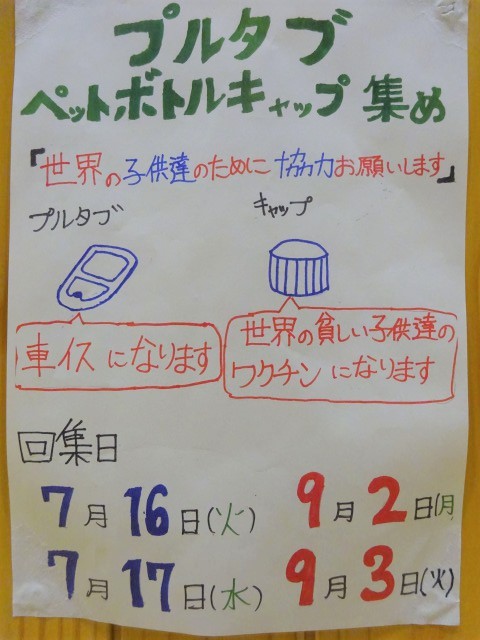 プルタブ
ペットボトルキャップ 集め
「世界の子供達のために 協力お願いします」
プルタブ
キャップ
車イスになります
世界の貧しい子供達の
ワクチンになります
回集日
7月16日(火)
9月2日(月
7月17日(水)
9月3日(火)